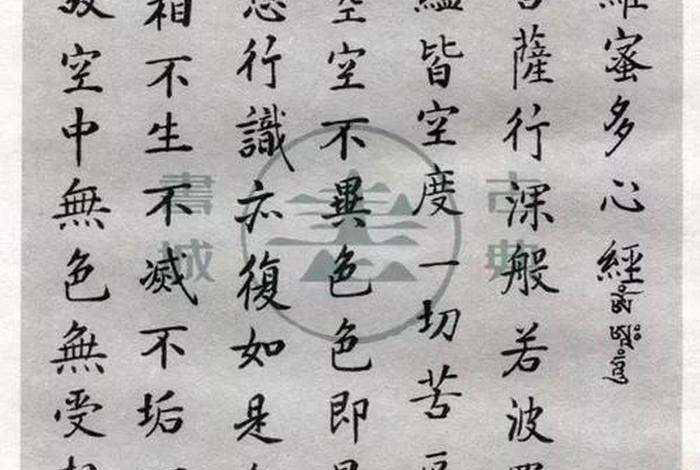 羅蜜多心經
菩薩行深般若波羅
蘊皆空度一切苦厄
空空不異色色即是
想行識亦復如是
相不生不滅不垢
故空中無色無受想
古典
書城